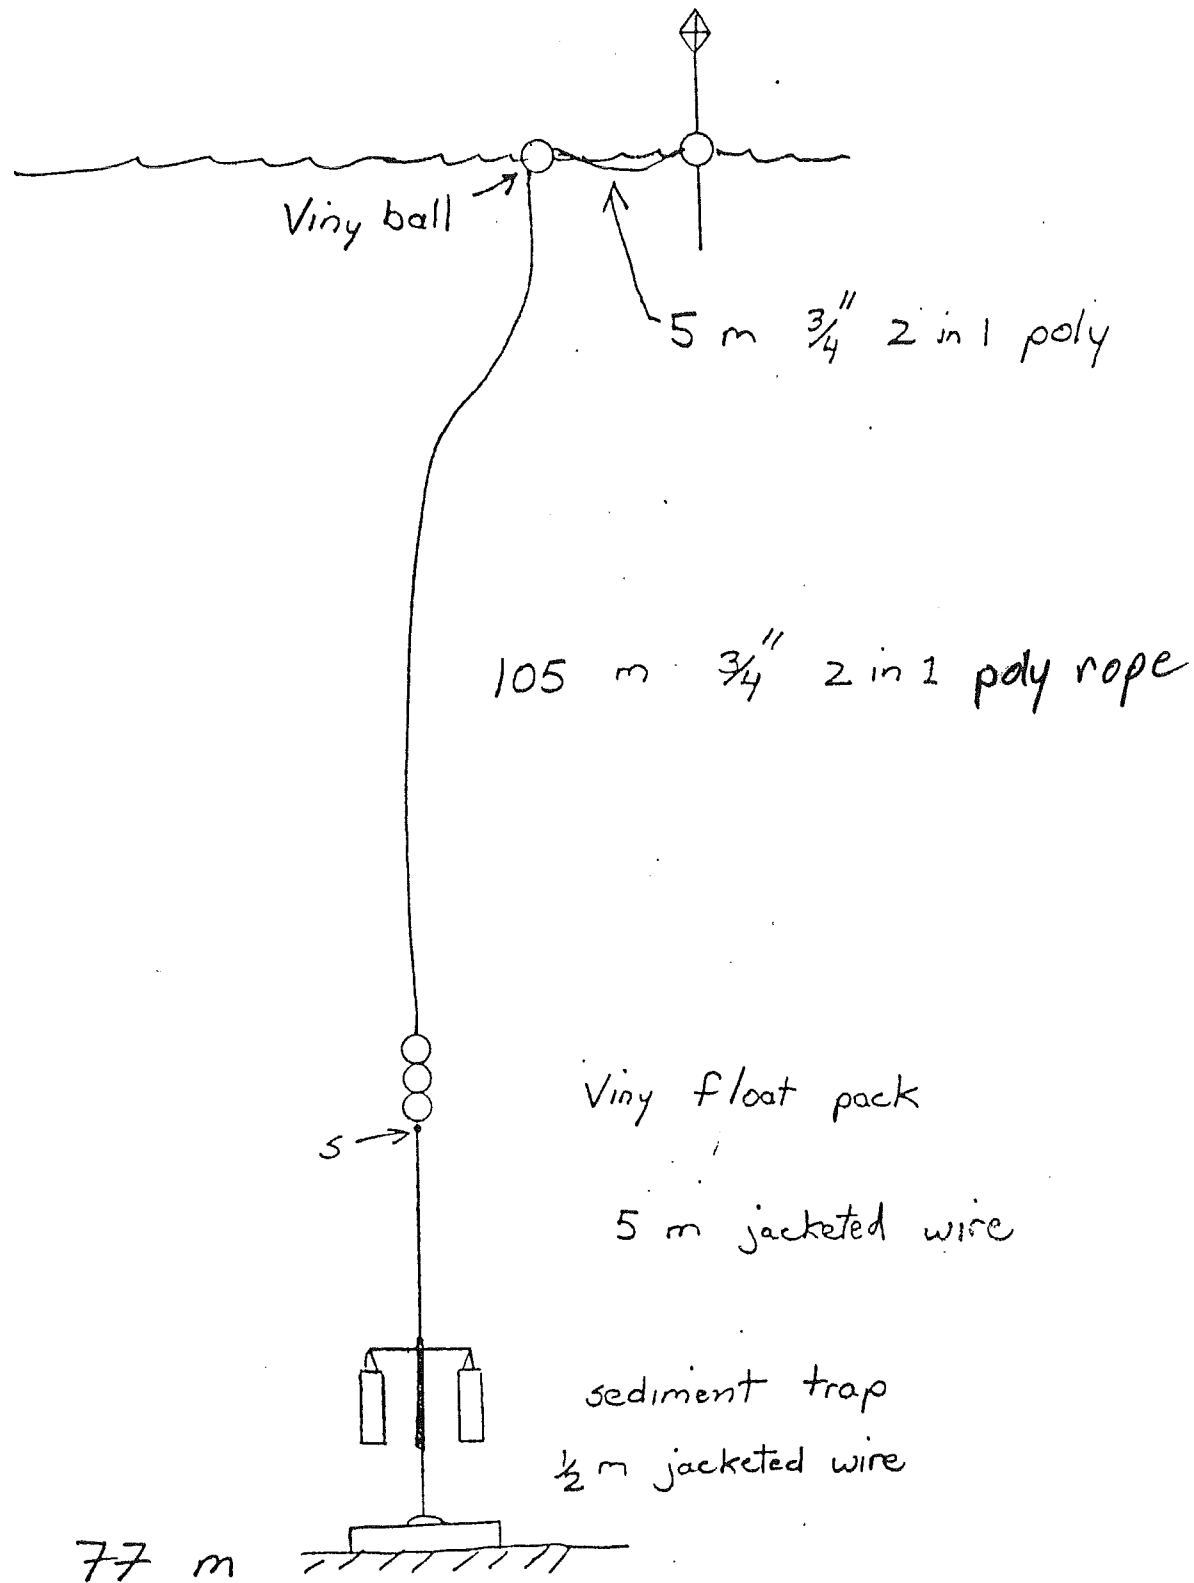 Viny ball
5 m 3/4" 2 in 1 poly
105 m 3/4" 2 in 1 poly rope
Viny float pack
S
5 m jacketed wire
sediment trap
1/2 m jacketed wire
77 m